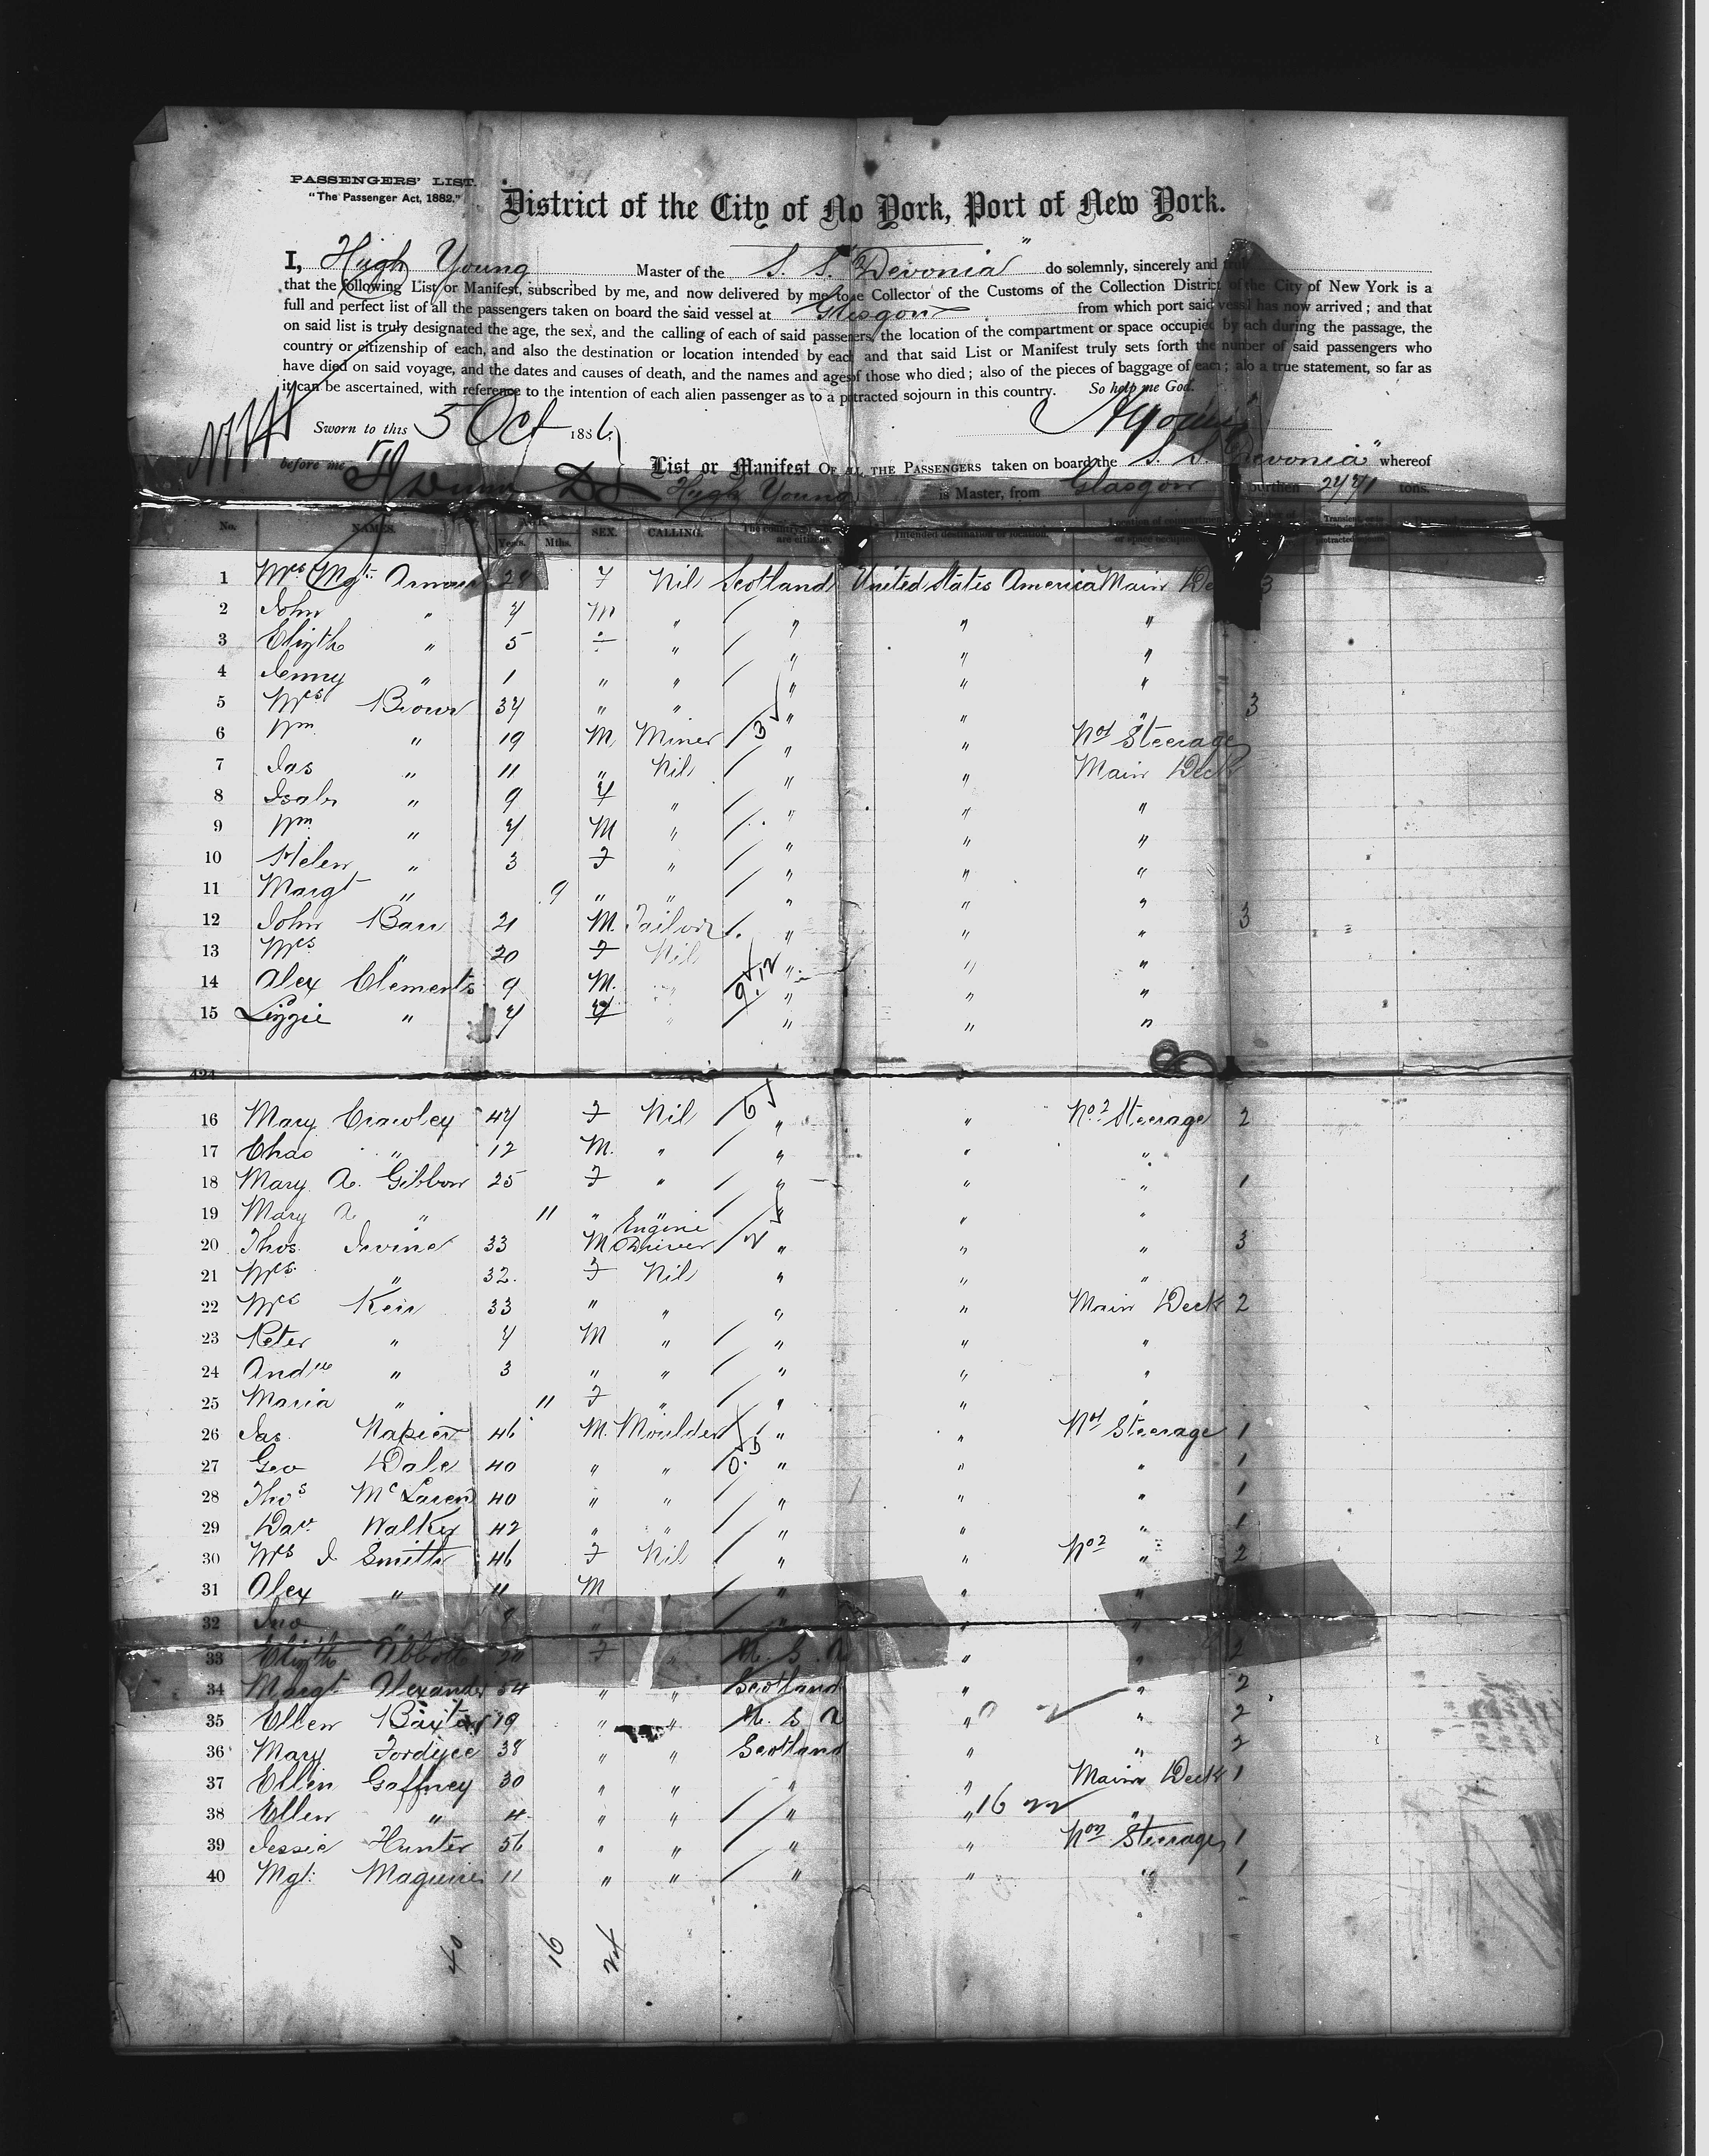 PASSENGERS' LIST.
"The Passenger Act, 1882."
District of the City of No York, Port of New York.
I, Hugh Young Master of the S. S. "Devonia" do solemnly, sincerely and
that the following List or Manifest, subscribed by me, and now delivered by me to e Collector of the Customs of the Collection District of the City of New York is a
full and perfect list of all the passengers taken on board the said vessel at Glasgow from which port said vessl has now arrived; and that
on said list is truly designated the age, the sex, and the calling of each of said passeners, the location of the compartment or space occupied by ach during the passage, the
country or citizenship of each, and also the destination or location intended by each and that said List or Manifest truly sets forth the number of said passengers who
have died on said voyage, and the dates and causes of death, and the names and ages of those who died; also of the pieces of baggage of each; alo a true statement, so far as
it can be ascertained, with reference to the intention of each alien passenger as to a potracted sojourn in this country. So help me God.
Sworn to this 5 Oct 1886 HYoung
before me
List or Manifest OF ALL THE PASSENGERS taken on board the S. S. "Devonia" whereof
Hugh Young is Master, from Glasgow burthen tons.
No. NAMES. Years. Mths. SEX. CALLING. The country of are citizens. Intended destination or location. Location of compartment or space occupied
1 Mrs Mgt. 24 F Nil Scotland United States America Main De 3
2 John " 7 M " " " "
3 Elizth " 5 F " " " "
4 Jenny " 1 " " " " "
5 Mrs Brown 34 " " " " " 3
6 Wm " 19 M Miner 3 " " No1 Steerage
7 Jas " 11 " Nil " " Main Deck
8 Isabr " 9 F " " " "
9 Wm " 7 M " " " "
10 Helen " 3 F " " " "
11 Margt " 9 " " " " "
12 John Barr 21 M. Tailor " " " 3
13 Mrs " 20 F Nil " " "
14 Alex Clements 9 M. " " " "
15 Lizzie " 7 F " " "
424
16 Mary Crawley 47 F Nil 6 " " No2 Steerage 2
17 Chas " 12 M. " " " "
18 Mary A. Gibbon 25 F " " " " 1
19 Mary A " 11 " " " " "
20 Thos Irvine 33 M Engine Driver " " " 3
21 Mrs. " 32. F Nil " " "
22 Mrs Keir 33 " " " " Main Deck 2
23 Peter " 7 M " " " "
24 Andw " 3 " " " " "
25 Maria " 11 F " " " "
26 Jas Napier 46 M. Moulder " " No1 Steerage 1
27 Geo Dale 40 " " " " " 1
28 Thos McLaren 40 " " " " " 1
29 Dav. Walker 42 " " " " " 1
30 Mrs J Smith 46 F Nil " " No2 " 2
31 Alex " 11 M " " " "
32 Jno " 8 " " " "
33 Elizth Abbott 20 F " U. S. A " " 2
34 Margt Alexander 54 " " Scotland " " 2
35 Ellen Baxter 19 " " U. S. A " " 2
36 Mary Fordyce 38 " " Scotland " " 2
37 Ellen Gaffney 30 " " " " Main Deck 1
38 Ellen " 4 " " " " 16 22 "
39 Jessie Hunter 56 " " " " No2 Steerage 1
40 Mgt. Maguire 11 " " " " " 1
40 16